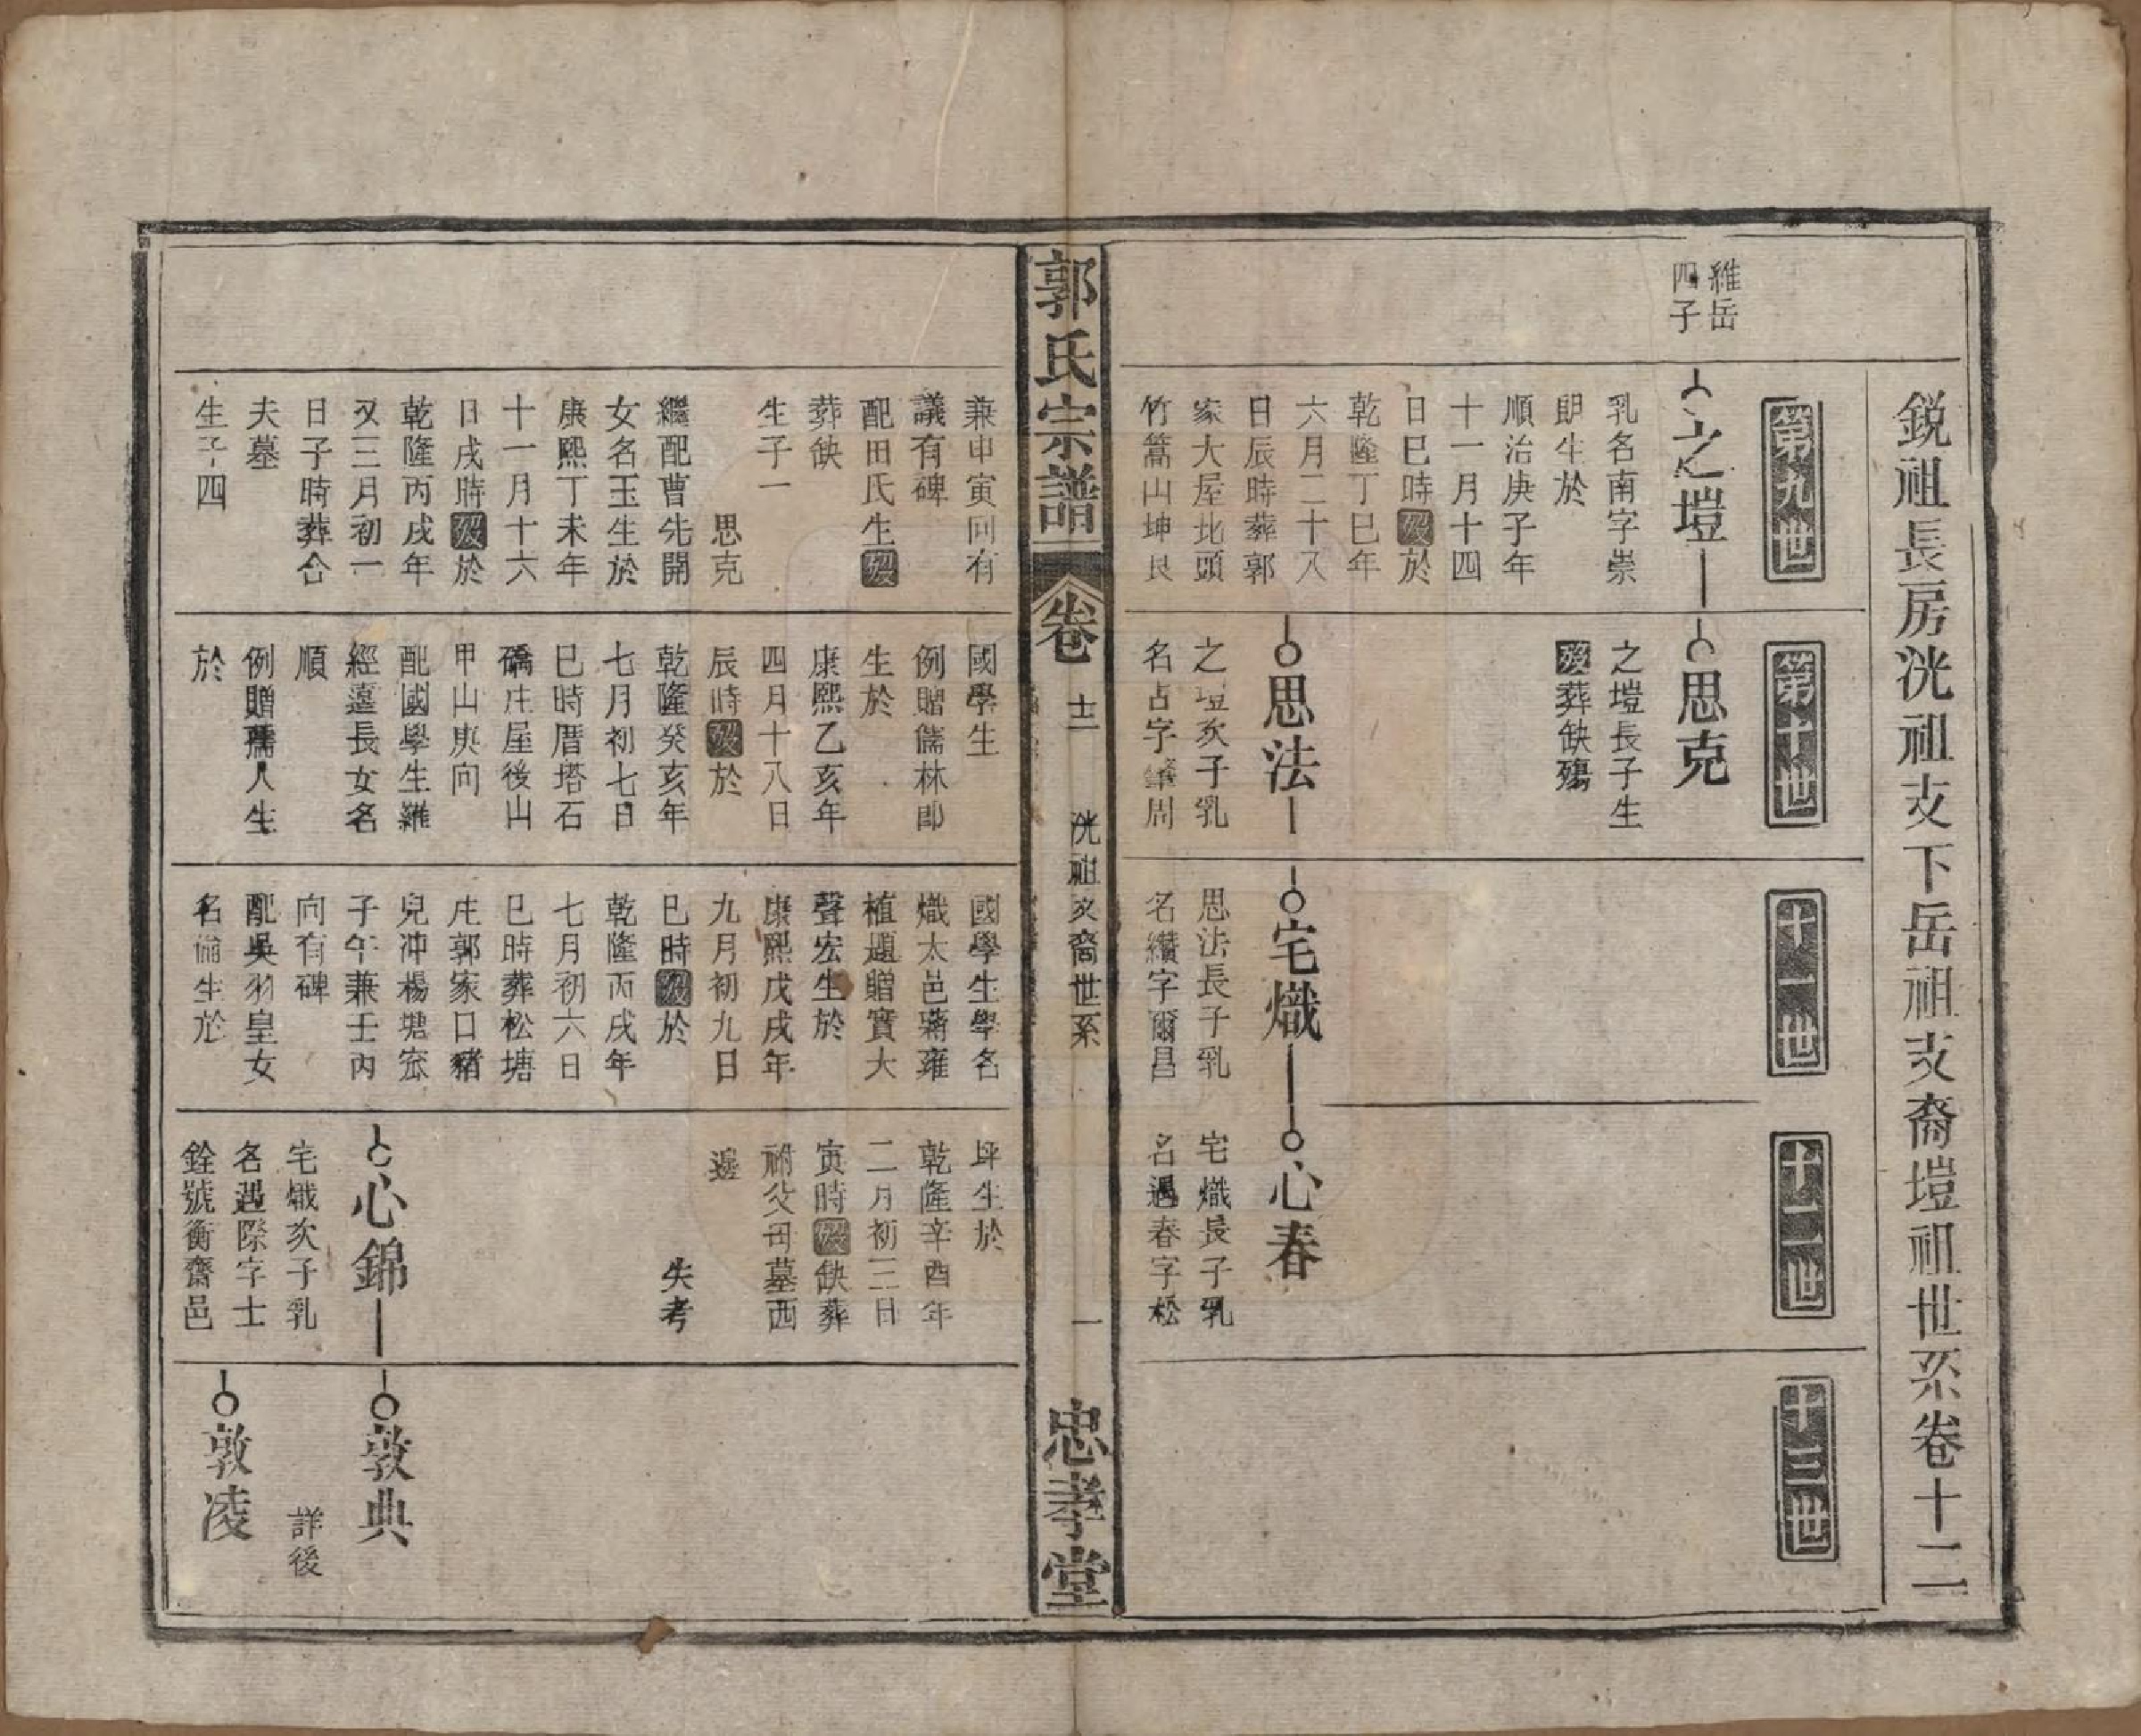 銳祖長房洸祖支下岳祖支裔塏祖世系卷十二
第九世
第十世
十一世
十二世
十三世
維岳
四子
之塏
乳名南字崇
朗生於
順治庚子年
十一月十四
日巳時歿於
乾隆丁巳年
六月二十八
日辰時葬郭
家大屋北頭
竹篙山坤艮
思克
之塏長子生
歿葬缺殤
思法
之塏次子乳
名占字 周
宅熾
思法長子乳
名纘字爾昌
心春
宅熾長子乳
名遇春字松
郭氏宗譜
卷
十二
洸祖支裔世系
一
忠孝堂
兼申寅向有
議有碑
配田氏生歿
葬缺
生子一
思克
繼配曹先開
女名玉生於
康熙丁未年
十一月十六
日戌時歿於
乾隆丙戌年
又三月初一
日子時葬合
夫墓
生子四
國學生
例贈儒林郎
生於
康熙乙亥年
四月十八日
辰時歿於
乾隆癸亥年
七月初七日
巳時厝塔石
礄庄屋後山
甲山庚向
配國學生羅
經薳長女名
順
例贈孺人生
於
國學生學名
熾太邑蔣雍
植題贈實大
聲宏生於
康熙戊戌年
九月初九日
巳時歿於
乾隆丙戌年
七月初六日
巳時葬松塘
庄郭家口豬
兒冲楊塘窊
子午兼壬丙
向有碑
配吳羽皇女
名倫生於
坪生於
乾隆辛酉年
二月初三日
寅時歿缺葬
祔父母墓西
邊
失考
心錦
宅熾次子乳
名遇際字士
銓號衡齋邑
敦典
詳後
敦凌